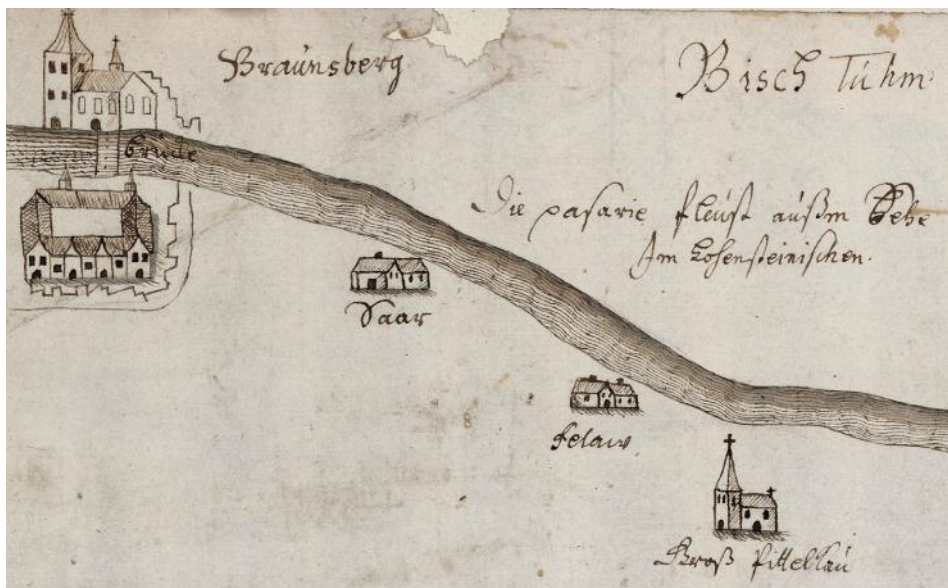 Braunsberg
Bisch Tuhm
brücke
Die pasarie fleust außm Sehe
Im Hohensteinischen.
Saar
Felaw
Groß